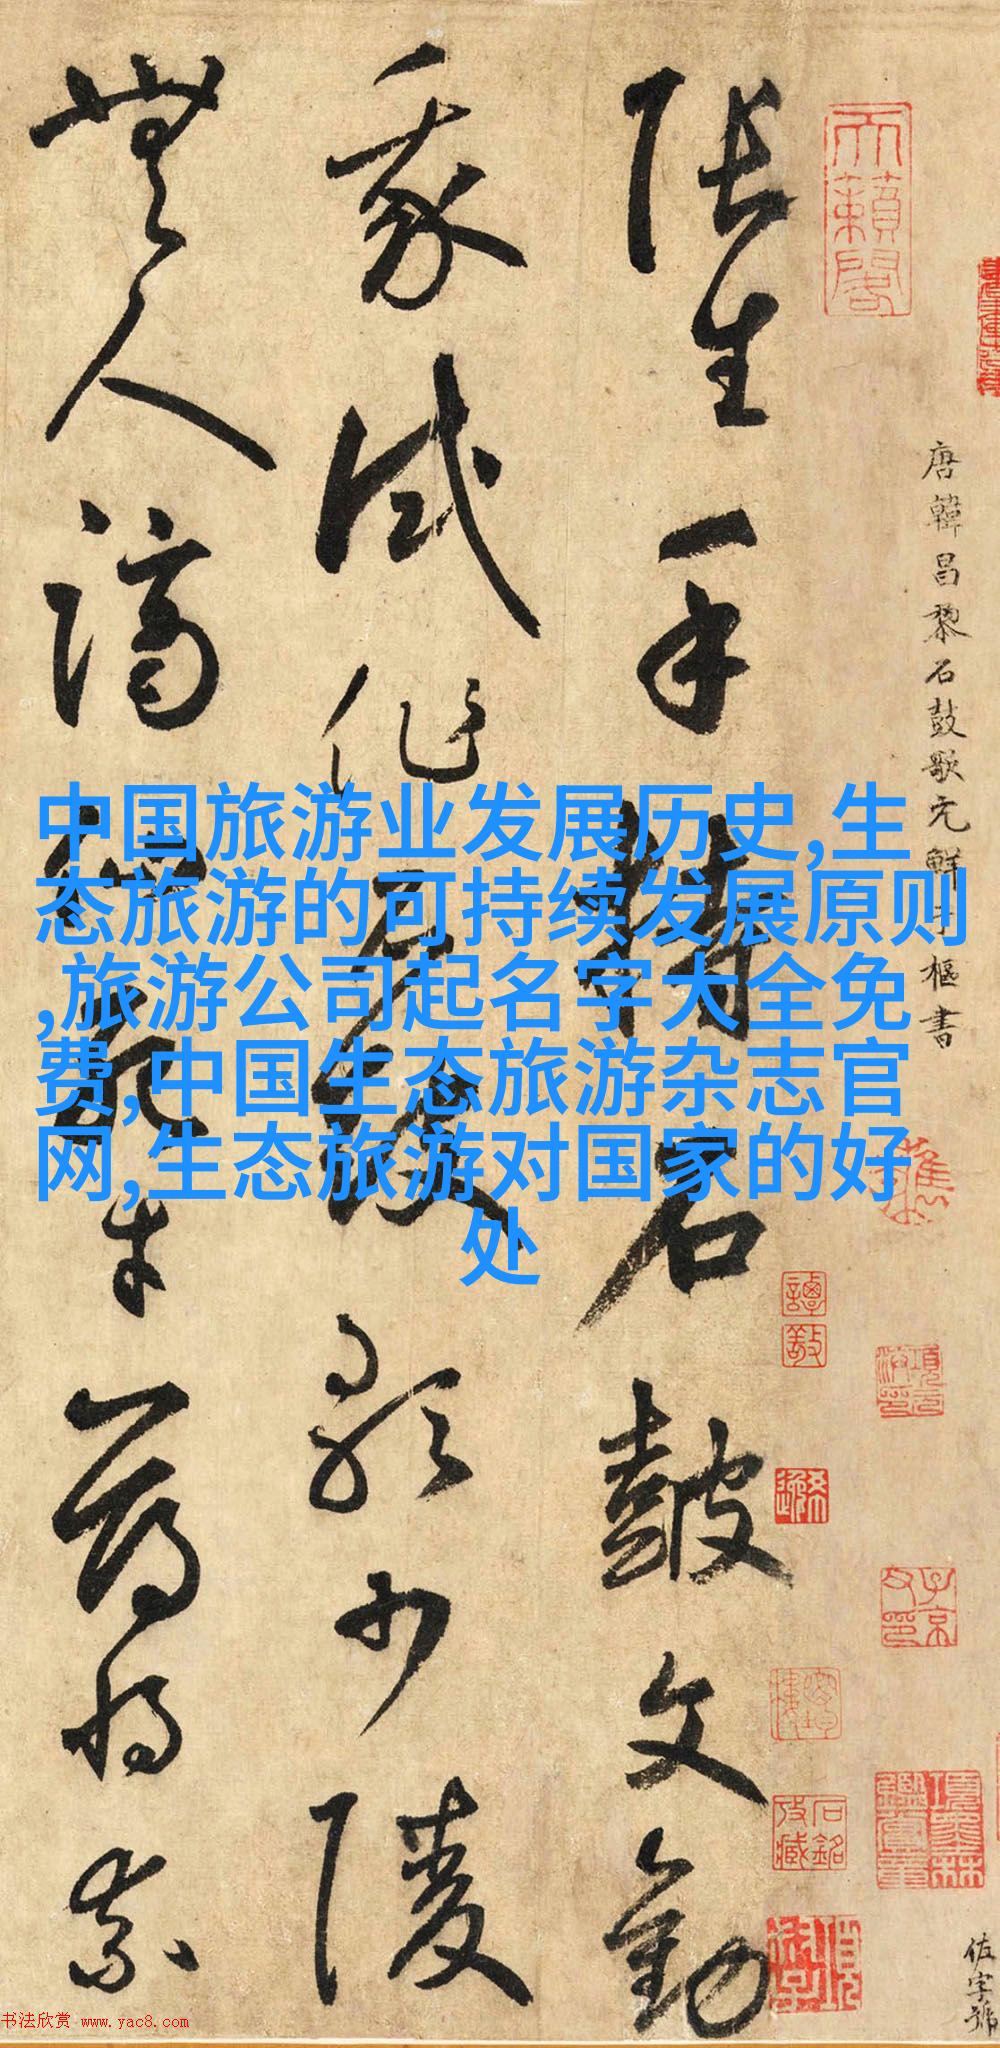 天籟閣
唐韓昌黎石鼓歌元鮮于樞書
張生手持石鼓文勸
我試作石鼓歌少陵
無人謫仙死才薄將奈
中国旅游业发展历史,生
态旅游的可持续发展原则
,旅游公司起名字大全免
费,中国生态旅游杂志官
网,生态旅游对国家的好
处
子京父印
石銘收藏
佐字號
书法欣赏 www.yac8.com